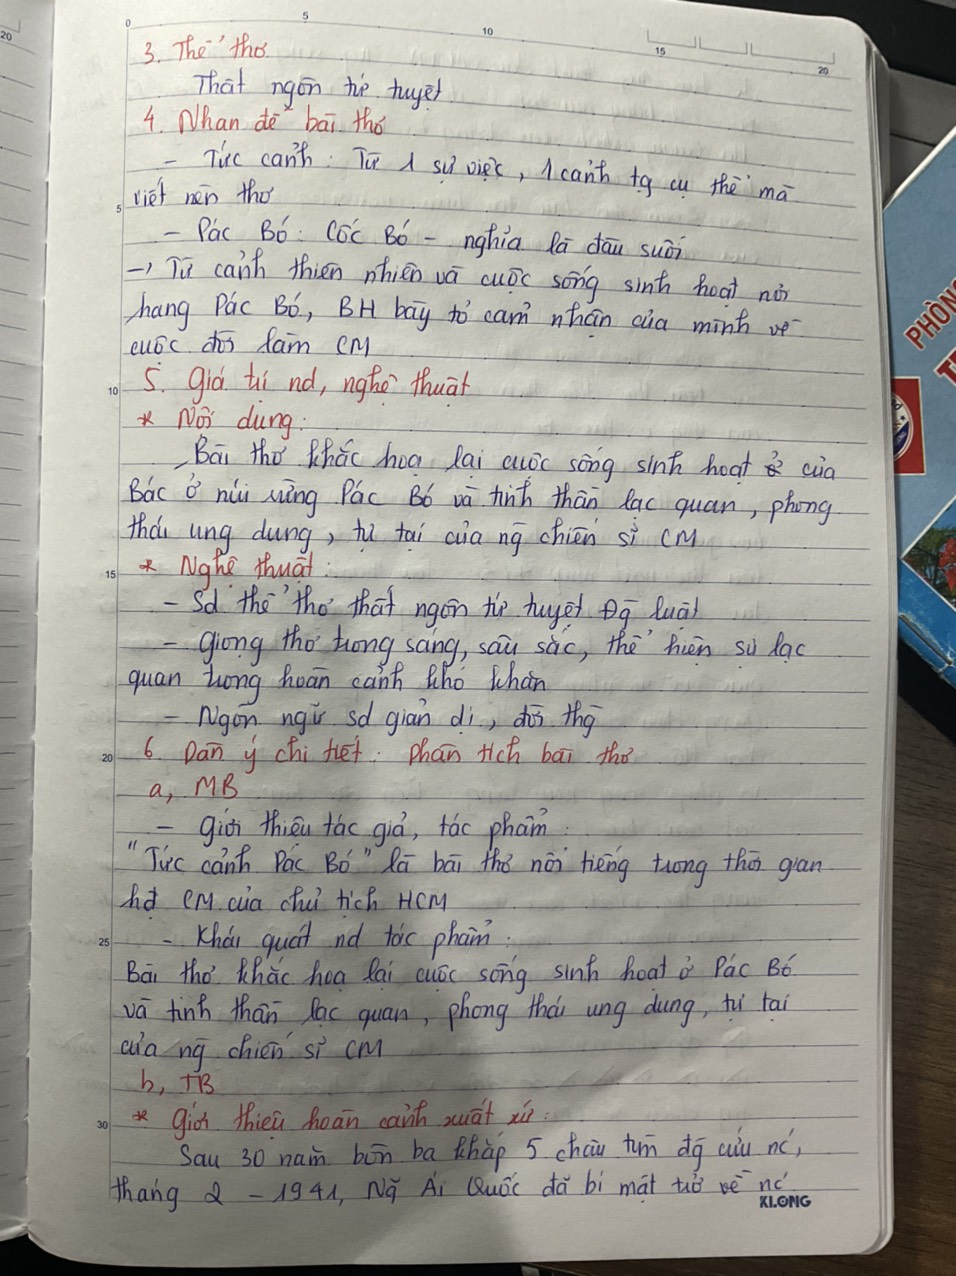 0 5 10 15 20
20
3. Thể thơ
Thất ngôn tứ tuyệt
4. Nhan đề bài thơ
- Tức cảnh: Từ 1 sự việc, 1 cảnh tg cụ thể mà
viết nên thơ
5
- Pác Bó: Cốc Bó - nghĩa là đầu suối
-> Từ cảnh thiên nhiên và cuộc sống sinh hoạt nơi
hang Pác Bó, BH bày tỏ cảm nhận của mình về
cuộc đời làm CM
10 5. Giá trị nd, nghệ thuật
* Nội dung:
Bài thơ khắc họa lại cuộc sống sinh hoạt của
Bác ở núi rừng Pác Bó và tinh thần lạc quan, phong
thái ung dung, tự tại của ng chiến sĩ CM
15 * Nghệ thuật:
- Sd thể thơ thất ngôn tứ tuyệt Đg luật
- Giọng thơ trong sáng, sâu sắc, thể hiện sự lạc
quan trong hoàn cảnh khó khăn
- Ngôn ngữ sd giản dị, đời thg
20 6. Dàn ý chi tiết: phân tích bài thơ
a, MB
- Giới thiệu tác giả, tác phẩm:
"Tức cảnh Pác Bó" là bài thơ nổi tiếng trong thời gian
hđ CM của chủ tịch HCM
25 - Khái quát nd tác phẩm:
Bài thơ khắc họa lại cuộc sống sinh hoạt ở Pác Bó
và tinh thần lạc quan, phong thái ung dung, tự tại
của ng chiến sĩ CM
b, TB
30 * Giới thiệu hoàn cảnh xuất xứ:
Sau 30 năm bôn ba khắp 5 châu tìm đg cứu nc,
tháng 2 - 1941, Ng Ái Quốc đã bí mật trở về nc
KLONG
PHÒNG